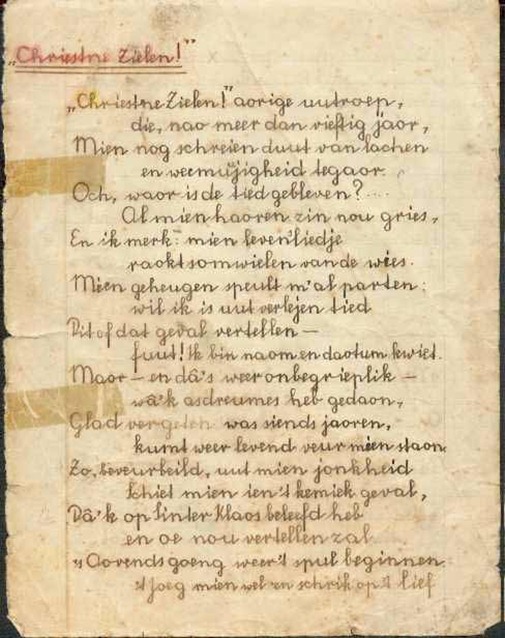 „Chriestne Zielen!"
„Chriestne Zielen!" aorige uutroep,
die, nao meer dan vieftig jaor,
Mien nog schreien duut van lachen
en weemujigheid tegaor.
Och, waor is de tied gebleven?....
Al mien haoren zin nou gries,
En ik merk: mien leven'liedje
raokt somwielen van de wies.
Mien geheugen speult m'al parten:
wil ik is uut verlejen tied
Dit of dat geval vertellen —
fuut! Ik bin naom en daotum kwiet.
Maor — en dâ's weer onbegrieplik —
wâ'k as dreumes heb gedaon,
Glad vergeten was siends jaoren,
kumt weer levend veur mien staon.
Zo, beveurbeild, uut mien jonkheid
Schiet mien ien 't kemiek geval,
Dâ'k op Sinter Klaos beleefd heb
en oe nou vertellen zal.
's Aovends goeng weer 't spul beginnen,
't joeg mien wel en schrik op 't lief